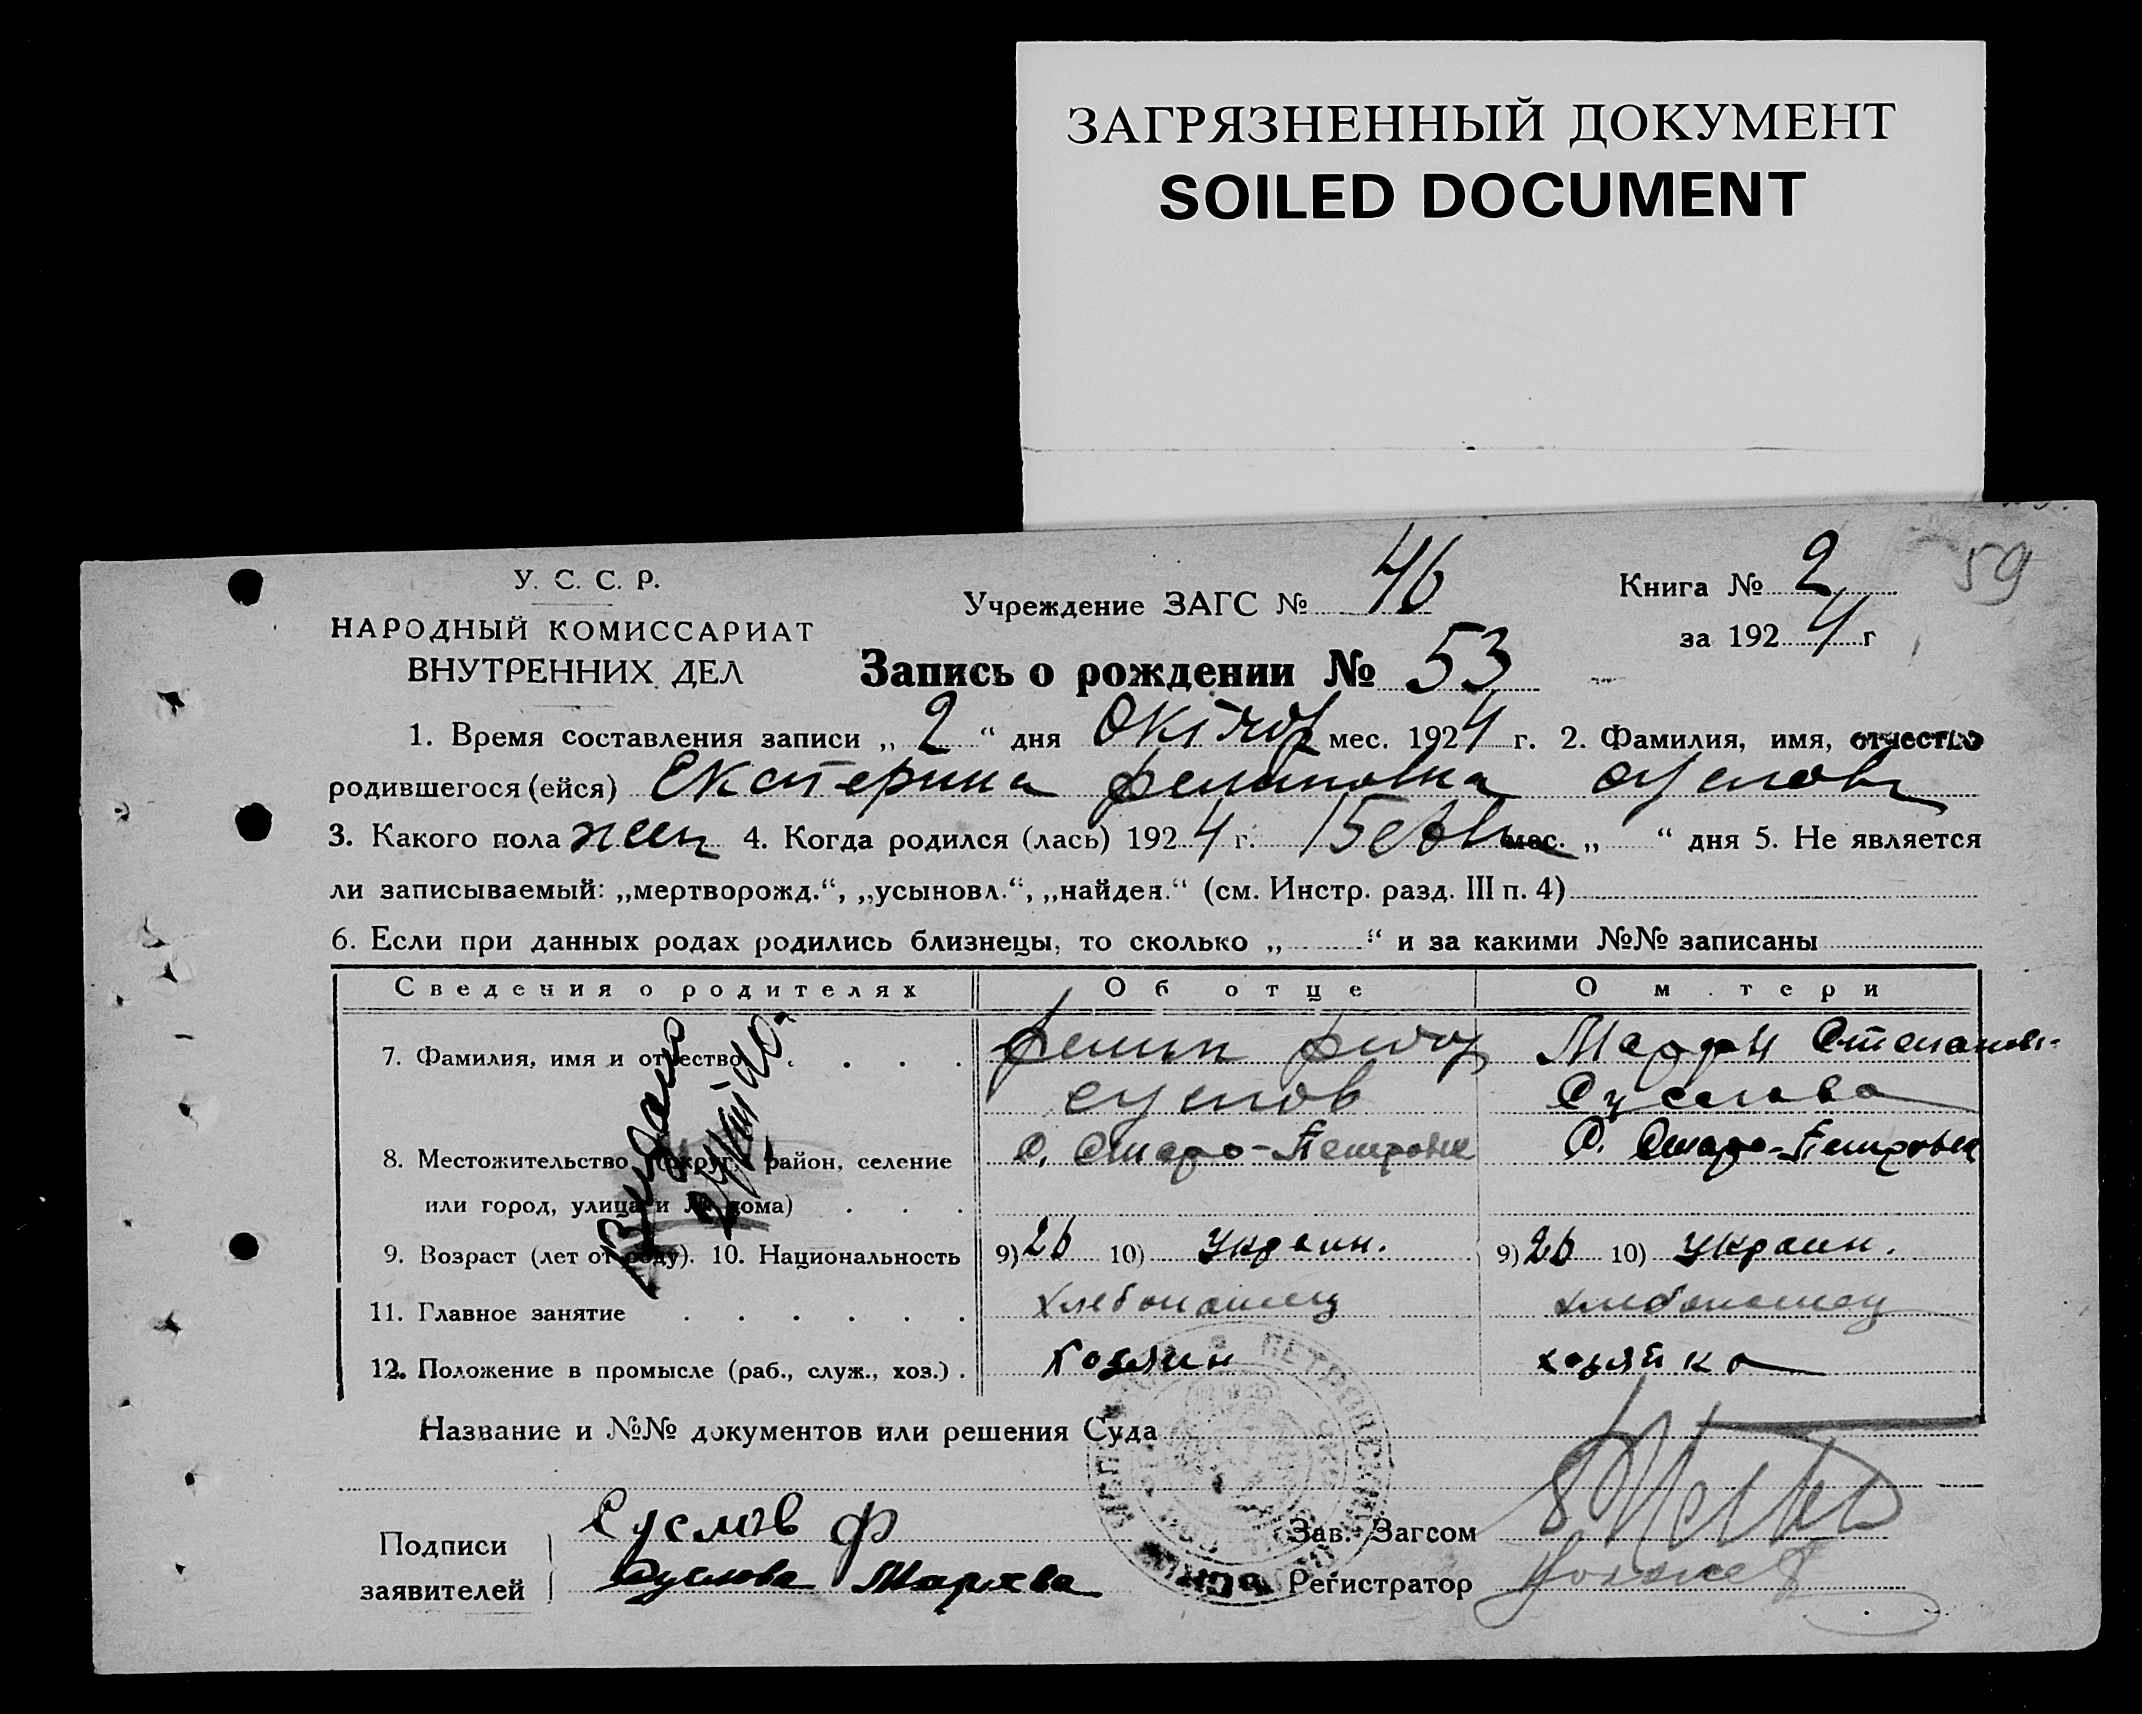 ЗАГРЯЗНЕННЫЙ ДОКУМЕНТ
SOILED DOCUMENT
59
У. С. С. Р.
НАРОДНЫЙ КОМИССАРИАТ
ВНУТРЕННИХ ДЕЛ
Учреждение ЗАГС № 46
Книга № 2
за 1924 г
Запись о рождении № 53
1. Время составления записи „ 2 “ дня мес. 1924 г. 2. Фамилия, имя, отчество
родившегося (ейся) Екатерина
3. Какого пола жен 4. Когда родился (лась) 1924 г. 15 мес. „ “ дня 5. Не является
ли записываемый: „мертворожд.“, „усыновл.“, „найден.“ (см. Инстр. разд. III п. 4)
6. Если при данных родах родились близнецы, то сколько „ “ и за какими №№ записаны
Сведения о родителях Об отце О м тери
7. Фамилия, имя и отчество
Суслов Суслова
8. Местожительство (округ, район, селение С. Старо-Петровка С. Старо-Петровка
или город, улица и № дома)
9. Возраст (лет от роду). 10. Национальность 9) 26 10) Украин. 9) 26 10) Украин.
11. Главное занятие хлебопашец хлебопашец
12. Положение в промысле (раб., служ., хоз.) Хозяин хозяйка
Название и №№ документов или решения Суда
Подписи
заявителей
Суслов Ф
Суслова
Зав. Загсом
Регистратор